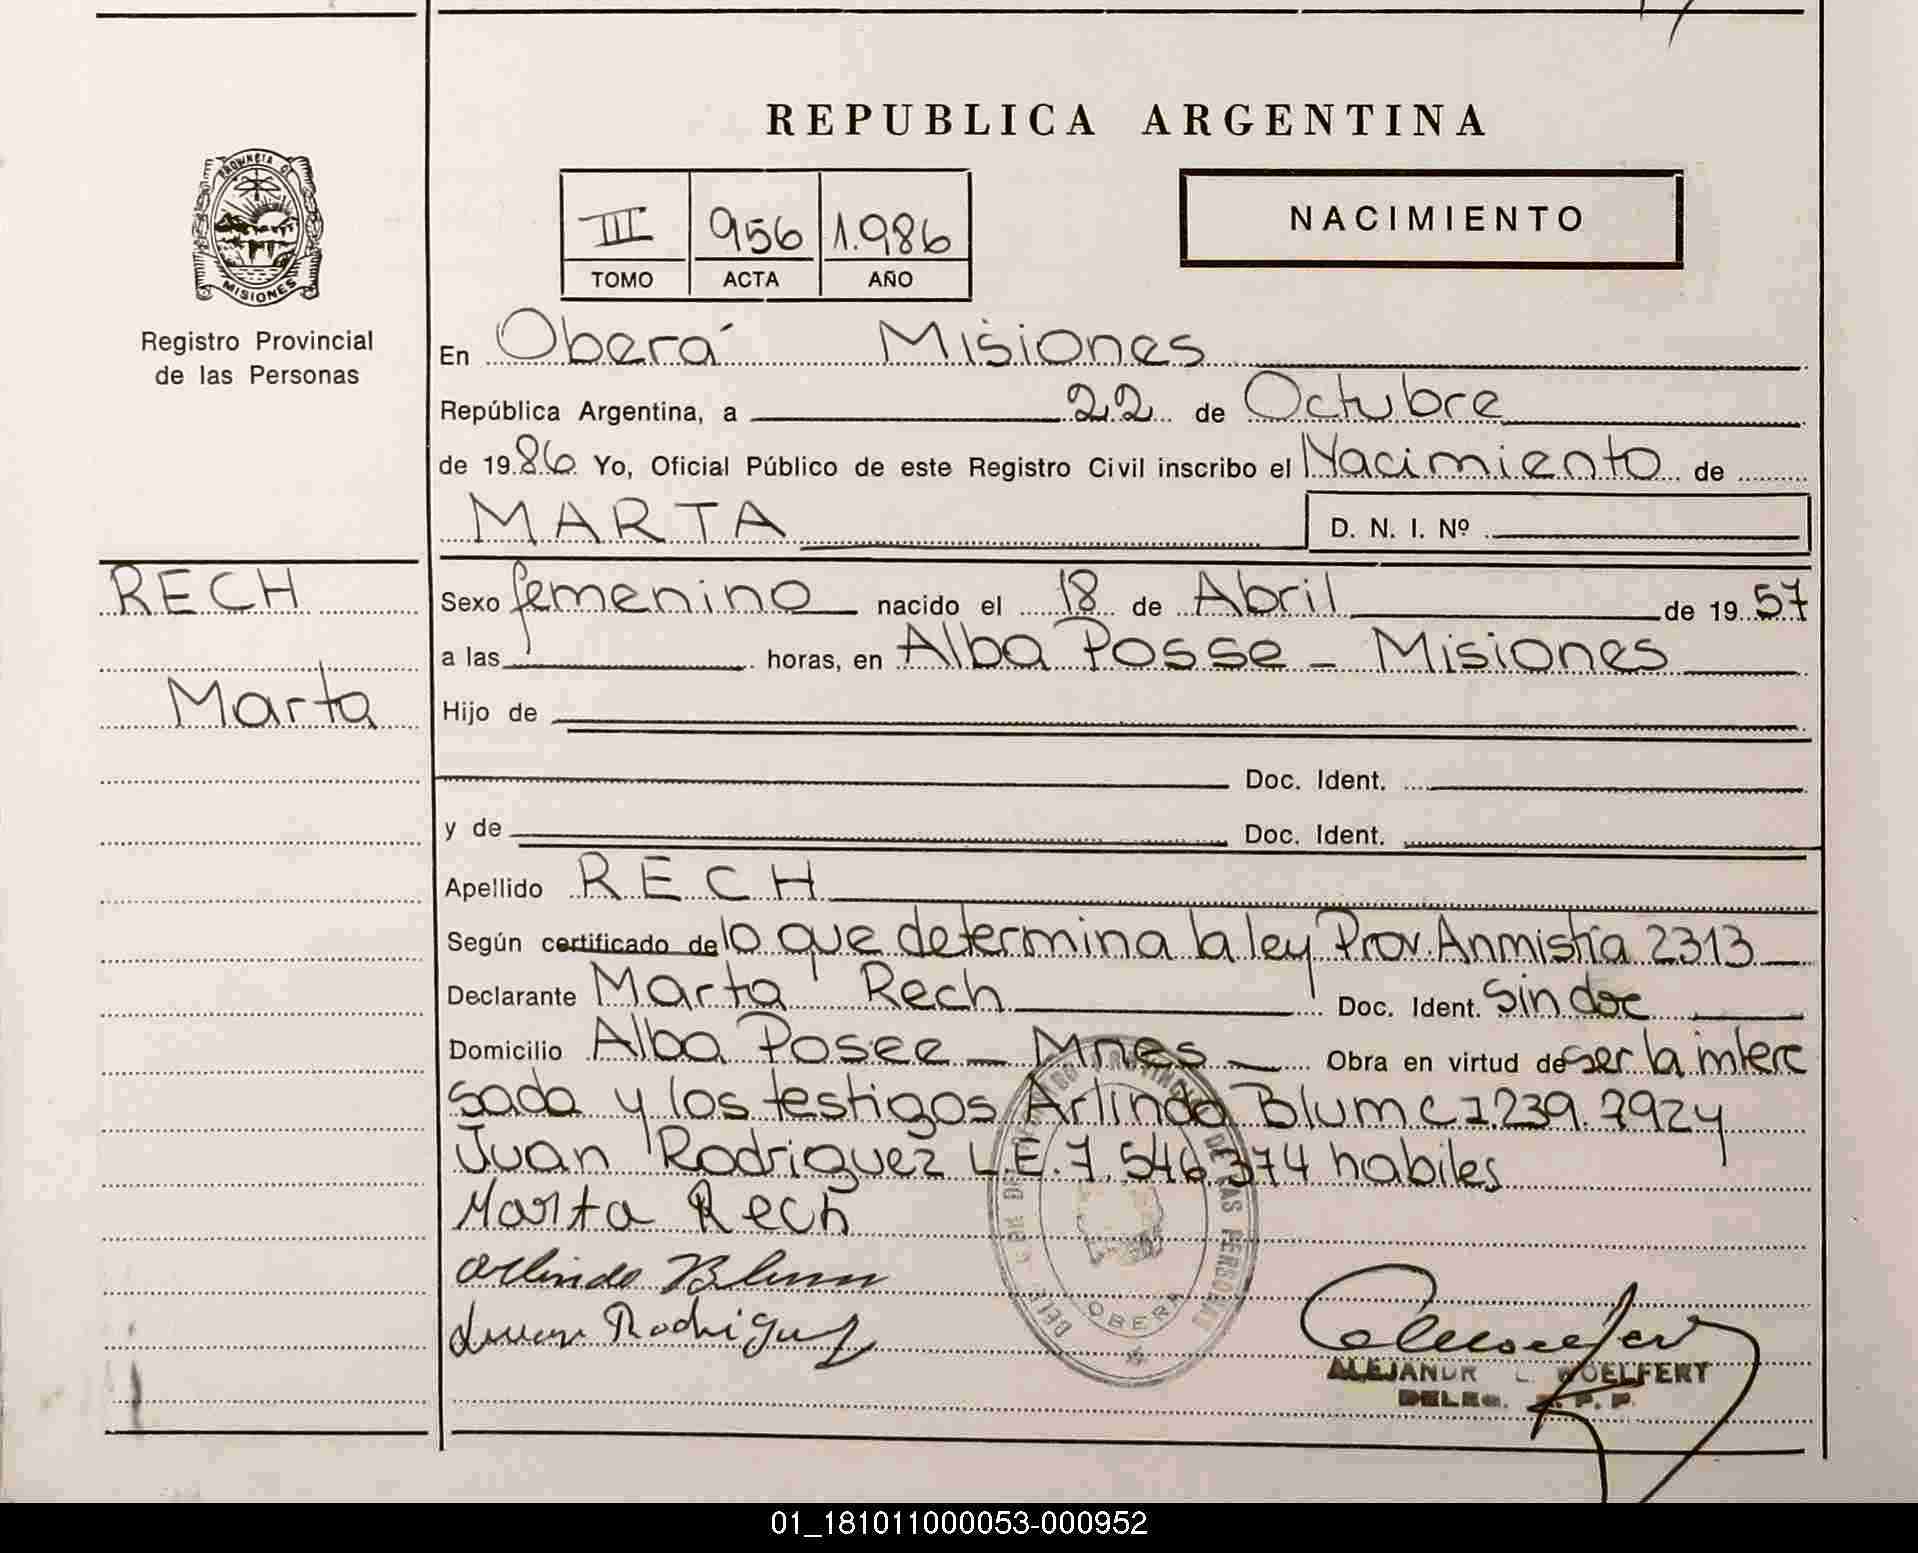 REPUBLICA ARGENTINA
PROVINCIA DE
MISIONES
Registro Provincial
de las Personas
III 956 1.986
TOMO ACTA AÑO
NACIMIENTO
En Oberá Misiones
República Argentina, a 22 de Octubre
de 1986 Yo, Oficial Público de este Registro Civil inscribo el Nacimiento de
MARTA D. N. I. Nº
RECH
Marta
Sexo femenino nacido el 18 de Abril de 1957
a las horas, en Alba Posse - Misiones
Hijo de
Doc. Ident.
y de Doc. Ident.
Apellido RECH
Según certificado de lo que determina la ley Prov. Anmistía 2313
Declarante Marta Rech Doc. Ident. Sin doc
Domicilio Alba Posee - Mnes - Obra en virtud de ser la intere
sada y los testigos Arlindo Blum C 7.239.792 y
Juan Rodriguez L.E. 7.546.374 habiles
Marta Rech
Arlindo Blum
Juan Rodriguez
DE LAS PERSONAS
OBERA
ALEJANDR L. WOELFERT
DELEG. P. P.
01_181011000053-000952